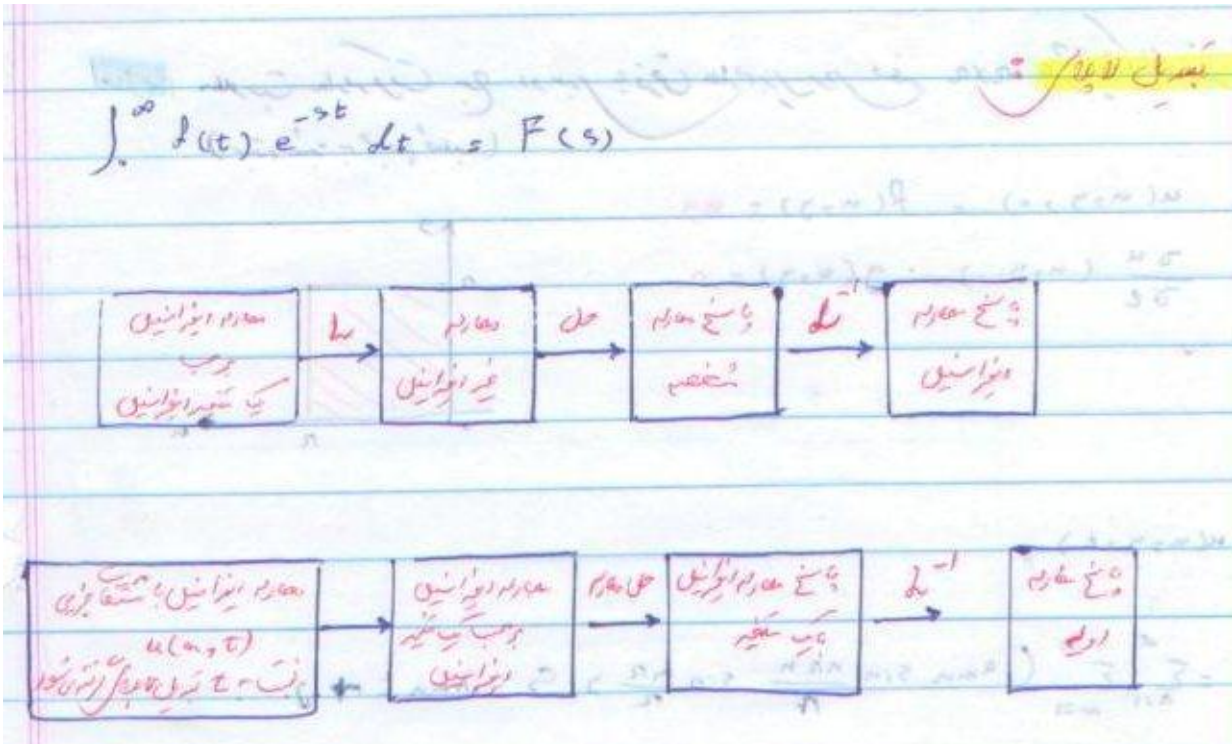 تبدیل لاپلاس:
∫₀^∞ f(t) e^{-st} dt = F(s)
معادله دیفرانسیل
برحسب
یک متغیر دیفرانسیل
L
معادله
غیر دیفرانسیل
حل
پاسخ معادله
مشخصه
L⁻¹
پاسخ معادله
دیفرانسیل
معادله دیفرانسیل با مشتقات جزیی
u(x,t)
نسبت به t تبدیل لاپلاس گرفته می‌شود
معادله دیفرانسیل
برحسب یک متغیر
دیفرانسیل
حل معادله
پاسخ معادله دیفرانسیل
با یک متغیر
L⁻¹
پاسخ معادله
اولیه